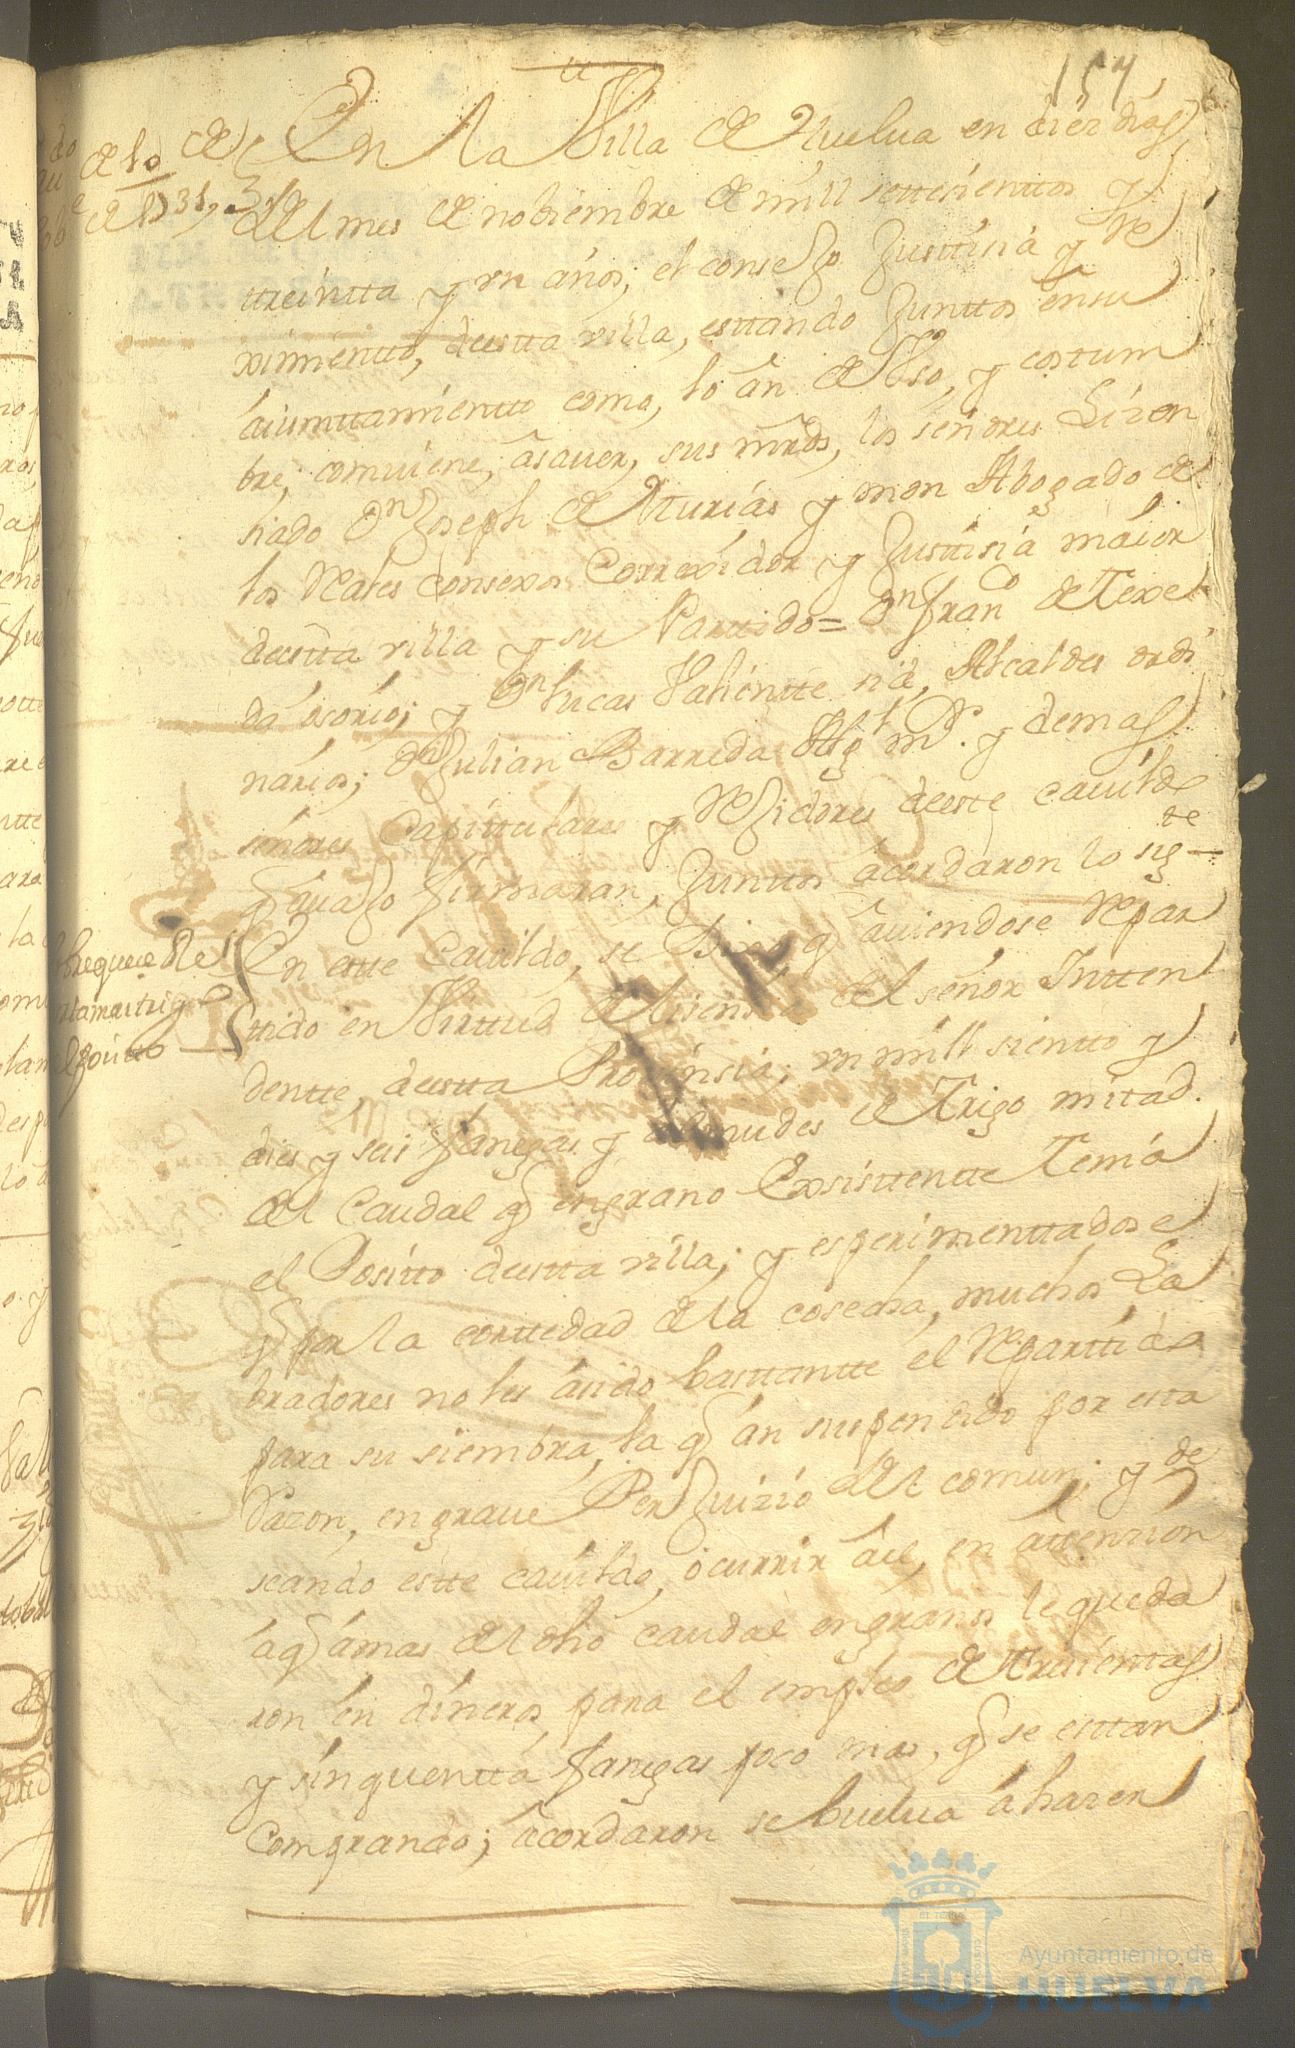 157
En la Villa de Huelua en diez dias
del mes de nobiembre de mill settesienttos y
treintta y un años; el consejo Justtisia y Re
ximientto, destta villa, esttando Junttos en su
aiunttamientto como, lo an de Vso, y costum
bre, comuiene, a sauer, sus mrds, los señores Lizen
siado Dn Joseph de Asturias y mon Abogado de
los Reales consexos Correxidor y Justtisia maior
destta villa y su Parttido = Dn Franco de Texe
da osorio; y Dn Lucas Valientte Alcaldes ordi
narios; Dn Julian Barreda Algul mor. y demas
señores Capittulares y Rejidores deeste cauildo
q auajo firmaran, Junttos acordaron lo sigte
En este Cauildo, se Dixo q auiendose Repar
ttido en Virttud de lisensia del señor Intten
dentte, destta Provinsia; un mill sientto y
dies y seis fanegas y almudes de Trigo mitad
del Caudal q en grano Exsisttentte Tenia
el Positto destta villa; y esperimenttadose
q por la corttedad de la cosecha, muchos La
bradores no les a sido basttantte el Reparttido
para su siembra, la q an suspendido por esta
Razon, en graue Perjuizio del comun; y de
seando este cauildo, ocurrir a el, en attenzion
a q amas del dho caudal en granos le queda
ron en dineros para el empleo de tresienttas
y sinquentta fanegas poco mas, q se esttan
Comprando; acordaron se buelua a hazer
de 10 de
de 1731
el Positto
Ayuntamiento de
HUELVA